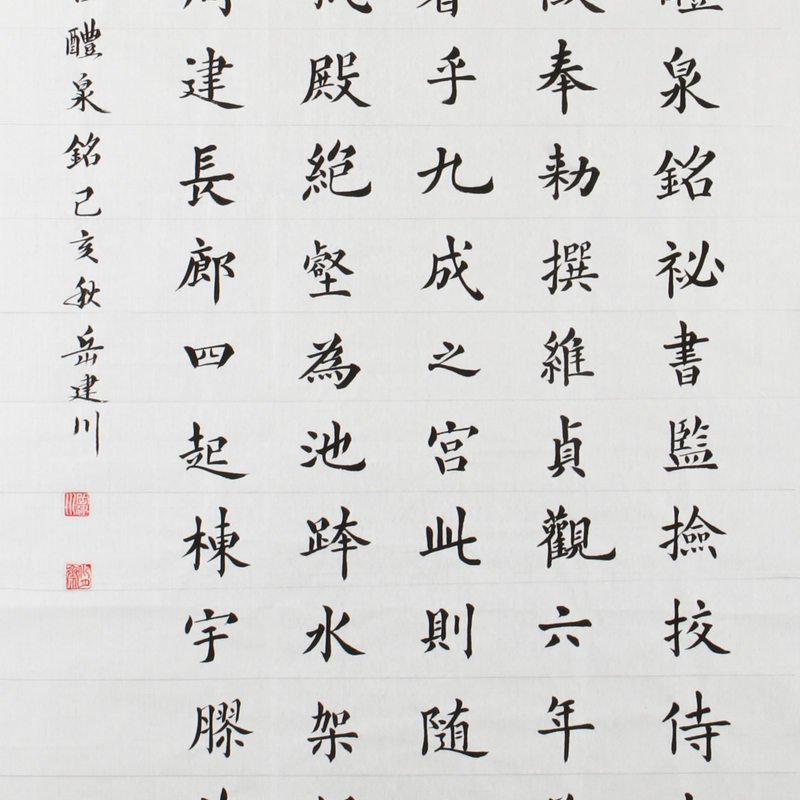 泉銘祕書監撿挍侍
奉勑撰維貞觀六年
乎九成之宮此則随
殿絶壑為池跨水架
建長廊四起棟宇膠
醴泉銘己亥秋岳建川